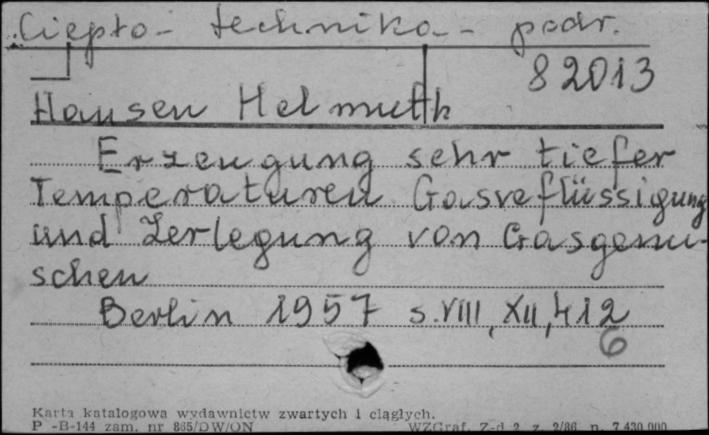 Ciepło- technika - podr.
82013
Hausen Helmuth
Erzeugung sehr tiefer
Temperaturen Gasveflüssigung
und Zerlegung von Gasgemi-
schen
Berlin 1957 s. VIII, XII, 412
6
Karta katalogowa wydawnictw zwartych i ciągłych.
P -B-144 zam. nr 865/DW/ON WZGraf. Z-d 2 z. 2/86 n. 7.430.000